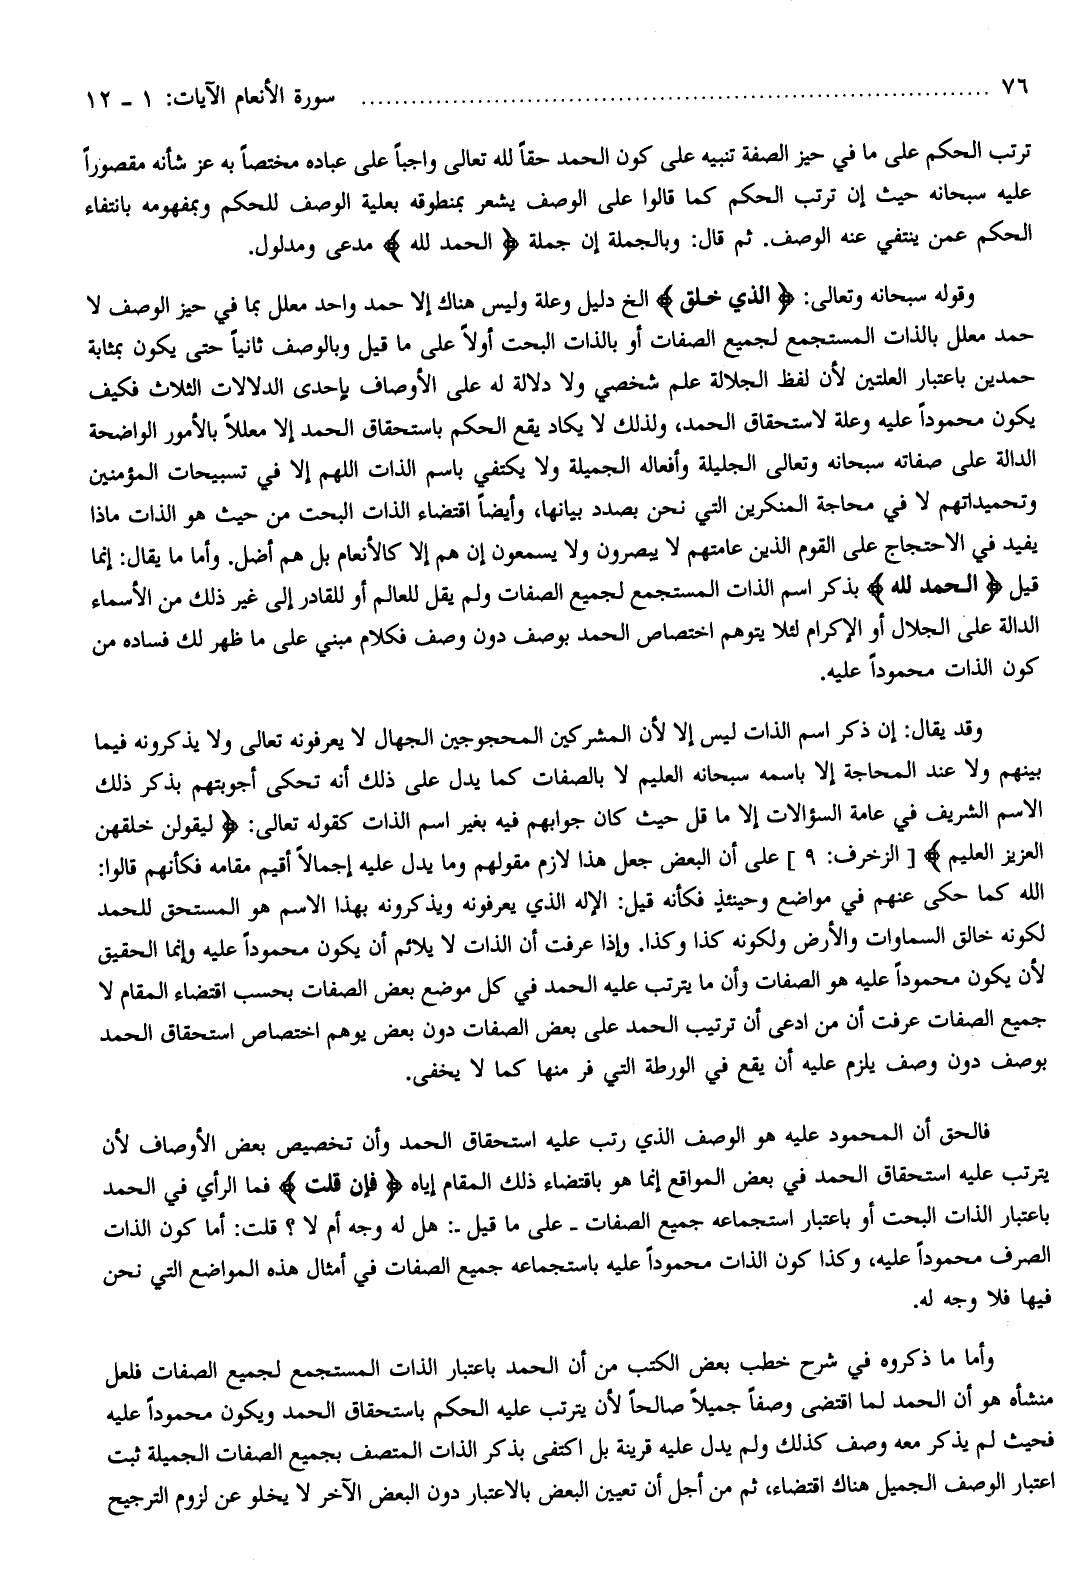 ٧٦ ........ سورة الأنعام الآيات: ١ - ١٢
ترتب الحكم على ما في حيز الصفة تنبيه على كون الحمد حقاً لله تعالى واجباً على عباده مختصاً به عز شأنه مقصوراً
عليه سبحانه حيث إن ترتب الحكم كما قالوا على الوصف يشعر بمنطوقه بعلية الوصف للحكم وبمفهومه بانتفاء
الحكم عمن ينتفي عنه الوصف. ثم قال: وبالجملة إن جملة ﴿ الحمد لله ﴾ مدعى ومدلول.
وقوله سبحانه وتعالى: ﴿ الذي خلق ﴾ الخ دليل وعلة وليس هناك إلا حمد واحد معلل بما في حيز الوصف لا
حمد معلل بالذات المستجمع لجميع الصفات أو بالذات البحت أولاً على ما قيل وبالوصف ثانياً حتى يكون بمثابة
حمدين باعتبار العلتين لأن لفظ الجلالة علم شخصي ولا دلالة له على الأوصاف بإحدى الدلالات الثلاث فكيف
يكون محموداً عليه وعلة لاستحقاق الحمد، ولذلك لا يكاد يقع الحكم باستحقاق الحمد إلا معللاً بالأمور الواضحة
الدالة على صفاته سبحانه وتعالى الجليلة وأفعاله الجميلة ولا يكتفي باسم الذات اللهم إلا في تسبيحات المؤمنين
وتحميداتهم لا في محاجة المنكرين التي نحن بصدد بيانها، وأيضاً اقتضاء الذات البحت من حيث هو الذات ماذا
يفيد في الاحتجاج على القوم الذين عامتهم لا يبصرون ولا يسمعون إن هم إلا كالأنعام بل هم أضل. وأما ما يقال: إنما
قيل ﴿ الحمد لله ﴾ بذكر اسم الذات المستجمع لجميع الصفات ولم يقل للعالم أو للقادر إلى غير ذلك من الأسماء
الدالة على الجلال أو الإكرام لئلا يتوهم اختصاص الحمد بوصف دون وصف فكلام مبني على ما ظهر لك فساده من
كون الذات محموداً عليه.
وقد يقال: إن ذكر اسم الذات ليس إلا لأن المشركين المحجوجين الجهال لا يعرفونه تعالى ولا يذكرونه فيما
بينهم ولا عند المحاجة إلا باسمه سبحانه العليم لا بالصفات كما يدل على ذلك أنه تحكى أجوبتهم بذكر ذلك
الاسم الشريف في عامة السؤالات إلا ما قل حيث كان جوابهم فيه بغير اسم الذات كقوله تعالى: ﴿ ليقولن خلقهن
العزيز العليم ﴾ [ الزخرف: ٩ ] على أن البعض جعل هذا لازم مقولهم وما يدل عليه إجمالاً أقيم مقامه فكأنهم قالوا:
الله كما حكى عنهم في مواضع وحينئذٍ فكأنه قيل: الإله الذي يعرفونه ويذكرونه بهذا الاسم هو المستحق للحمد
لكونه خالق السماوات والأرض ولكونه كذا وكذا. وإذا عرفت أن الذات لا يلائم أن يكون محموداً عليه وإنما الحقيق
لأن يكون محموداً عليه هو الصفات وأن ما يترتب عليه الحمد في كل موضع بعض الصفات بحسب اقتضاء المقام لا
جميع الصفات عرفت أن من ادعى أن ترتيب الحمد على بعض الصفات دون بعض يوهم اختصاص استحقاق الحمد
بوصف دون وصف يلزم عليه أن يقع في الورطة التي فر منها كما لا يخفى.
فالحق أن المحمود عليه هو الوصف الذي رتب عليه استحقاق الحمد وأن تخصيص بعض الأوصاف لأن
يترتب عليه استحقاق الحمد في بعض المواقع إنما هو باقتضاء ذلك المقام إياه ﴿ فإن قلت ﴾ فما الرأي في الحمد
باعتبار الذات البحت أو باعتبار استجماعه جميع الصفات ـ على ما قيل ـ: هل له وجه أم لا ؟ قلت: أما كون الذات
الصرف محموداً عليه، وكذا كون الذات محموداً عليه باستجماعه جميع الصفات في أمثال هذه المواضع التي نحن
فيها فلا وجه له.
وأما ما ذكروه في شرح خطب بعض الكتب من أن الحمد باعتبار الذات المستجمع لجميع الصفات فلعل
منشأه هو أن الحمد لما اقتضى وصفاً جميلاً صالحاً لأن يترتب عليه الحكم باستحقاق الحمد ويكون محموداً عليه
فحيث لم يذكر معه وصف كذلك ولم يدل عليه قرينة بل اكتفى بذكر الذات المتصف بجميع الصفات الجميلة ثبت
اعتبار الوصف الجميل هناك اقتضاء، ثم من أجل أن تعيين البعض بالاعتبار دون البعض الآخر لا يخلو عن لزوم الترجيح